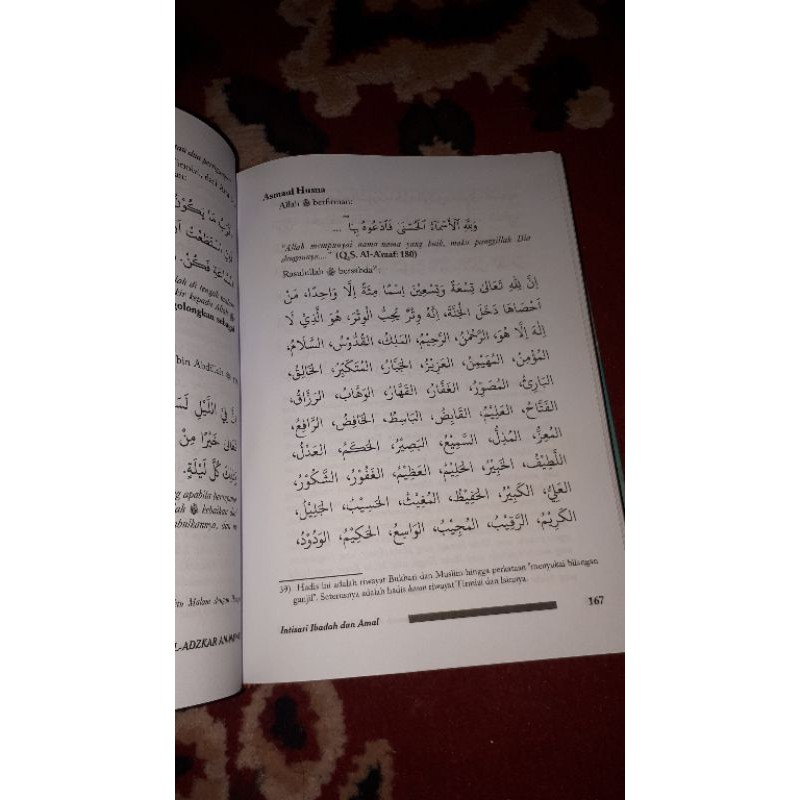 kir kepada Allah
golongkan sebagai
bin Abdillah
L-ADZKAR AN-
Asmaul Husna
Allah ﷻ berfirman:
وَلِلَّهِ الْأَسْمَاءُ الْحُسْنَى فَادْعُوهُ بِهَا ...
"Allah mempunyai nama-nama yang baik, maka panggillah Dia
dengannya...." (Q.S. Al-A'raaf: 180)
Rasulullah ﷺ bersabda³⁹:
إِنَّ لِلَّهِ تَعَالَى تِسْعَةً وَتِسْعِينَ اِسْمًا مِئَةً إِلَّا وَاحِدًا، مَنْ
أَحْصَاهَا دَخَلَ الْجَنَّةَ، إِنَّهُ وِتْرٌ يُحِبُّ الْوِتْرَ، هُوَ الَّذِيْ لَا
إِلَهَ إِلَّا هُوَ، الرَّحْمٰنُ، الرَّحِيْمُ، المَلِكُ، القُدُّوْسُ، السَّلَامُ،
المُؤْمِنُ، المُهَيْمِنُ، العَزِيْزُ، الجَبَّارُ، المُتَكَبِّرُ، الخَالِقُ،
البَارِئُ، المُصَوِّرُ، الغَفَّارُ، القَهَّارُ، الوَهَّابُ، الرَّزَّاقُ،
الفَتَّاحُ، العَلِيْمُ، القَابِضُ، البَاسِطُ، الخَافِضُ، الرَّافِعُ،
المُعِزُّ، المُذِلُّ، السَّمِيْعُ، البَصِيْرُ، الحَكَمُ، العَدْلُ،
اللَّطِيْفُ، الخَبِيْرُ، الحَلِيْمُ، العَظِيْمُ، الغَفُوْرُ، الشَّكُوْرُ،
العَلِيُّ، الكَبِيْرُ، الحَفِيْظُ، المُغِيْثُ، الحَسِيْبُ، الجَلِيْلُ،
الكَرِيْمُ، الرَّقِيْبُ، المُجِيْبُ، الوَاسِعُ، الحَكِيْمُ، الوَدُوْدُ،
39) Hadis ini adalah riwayat Bukhari dan Muslim hingga perkataan "menyukai bilangan
ganjil". Seterusnya adalah hadis hasan riwayat Tirmizi dan lainnya.
Intisari Ibadah dan Amal
167